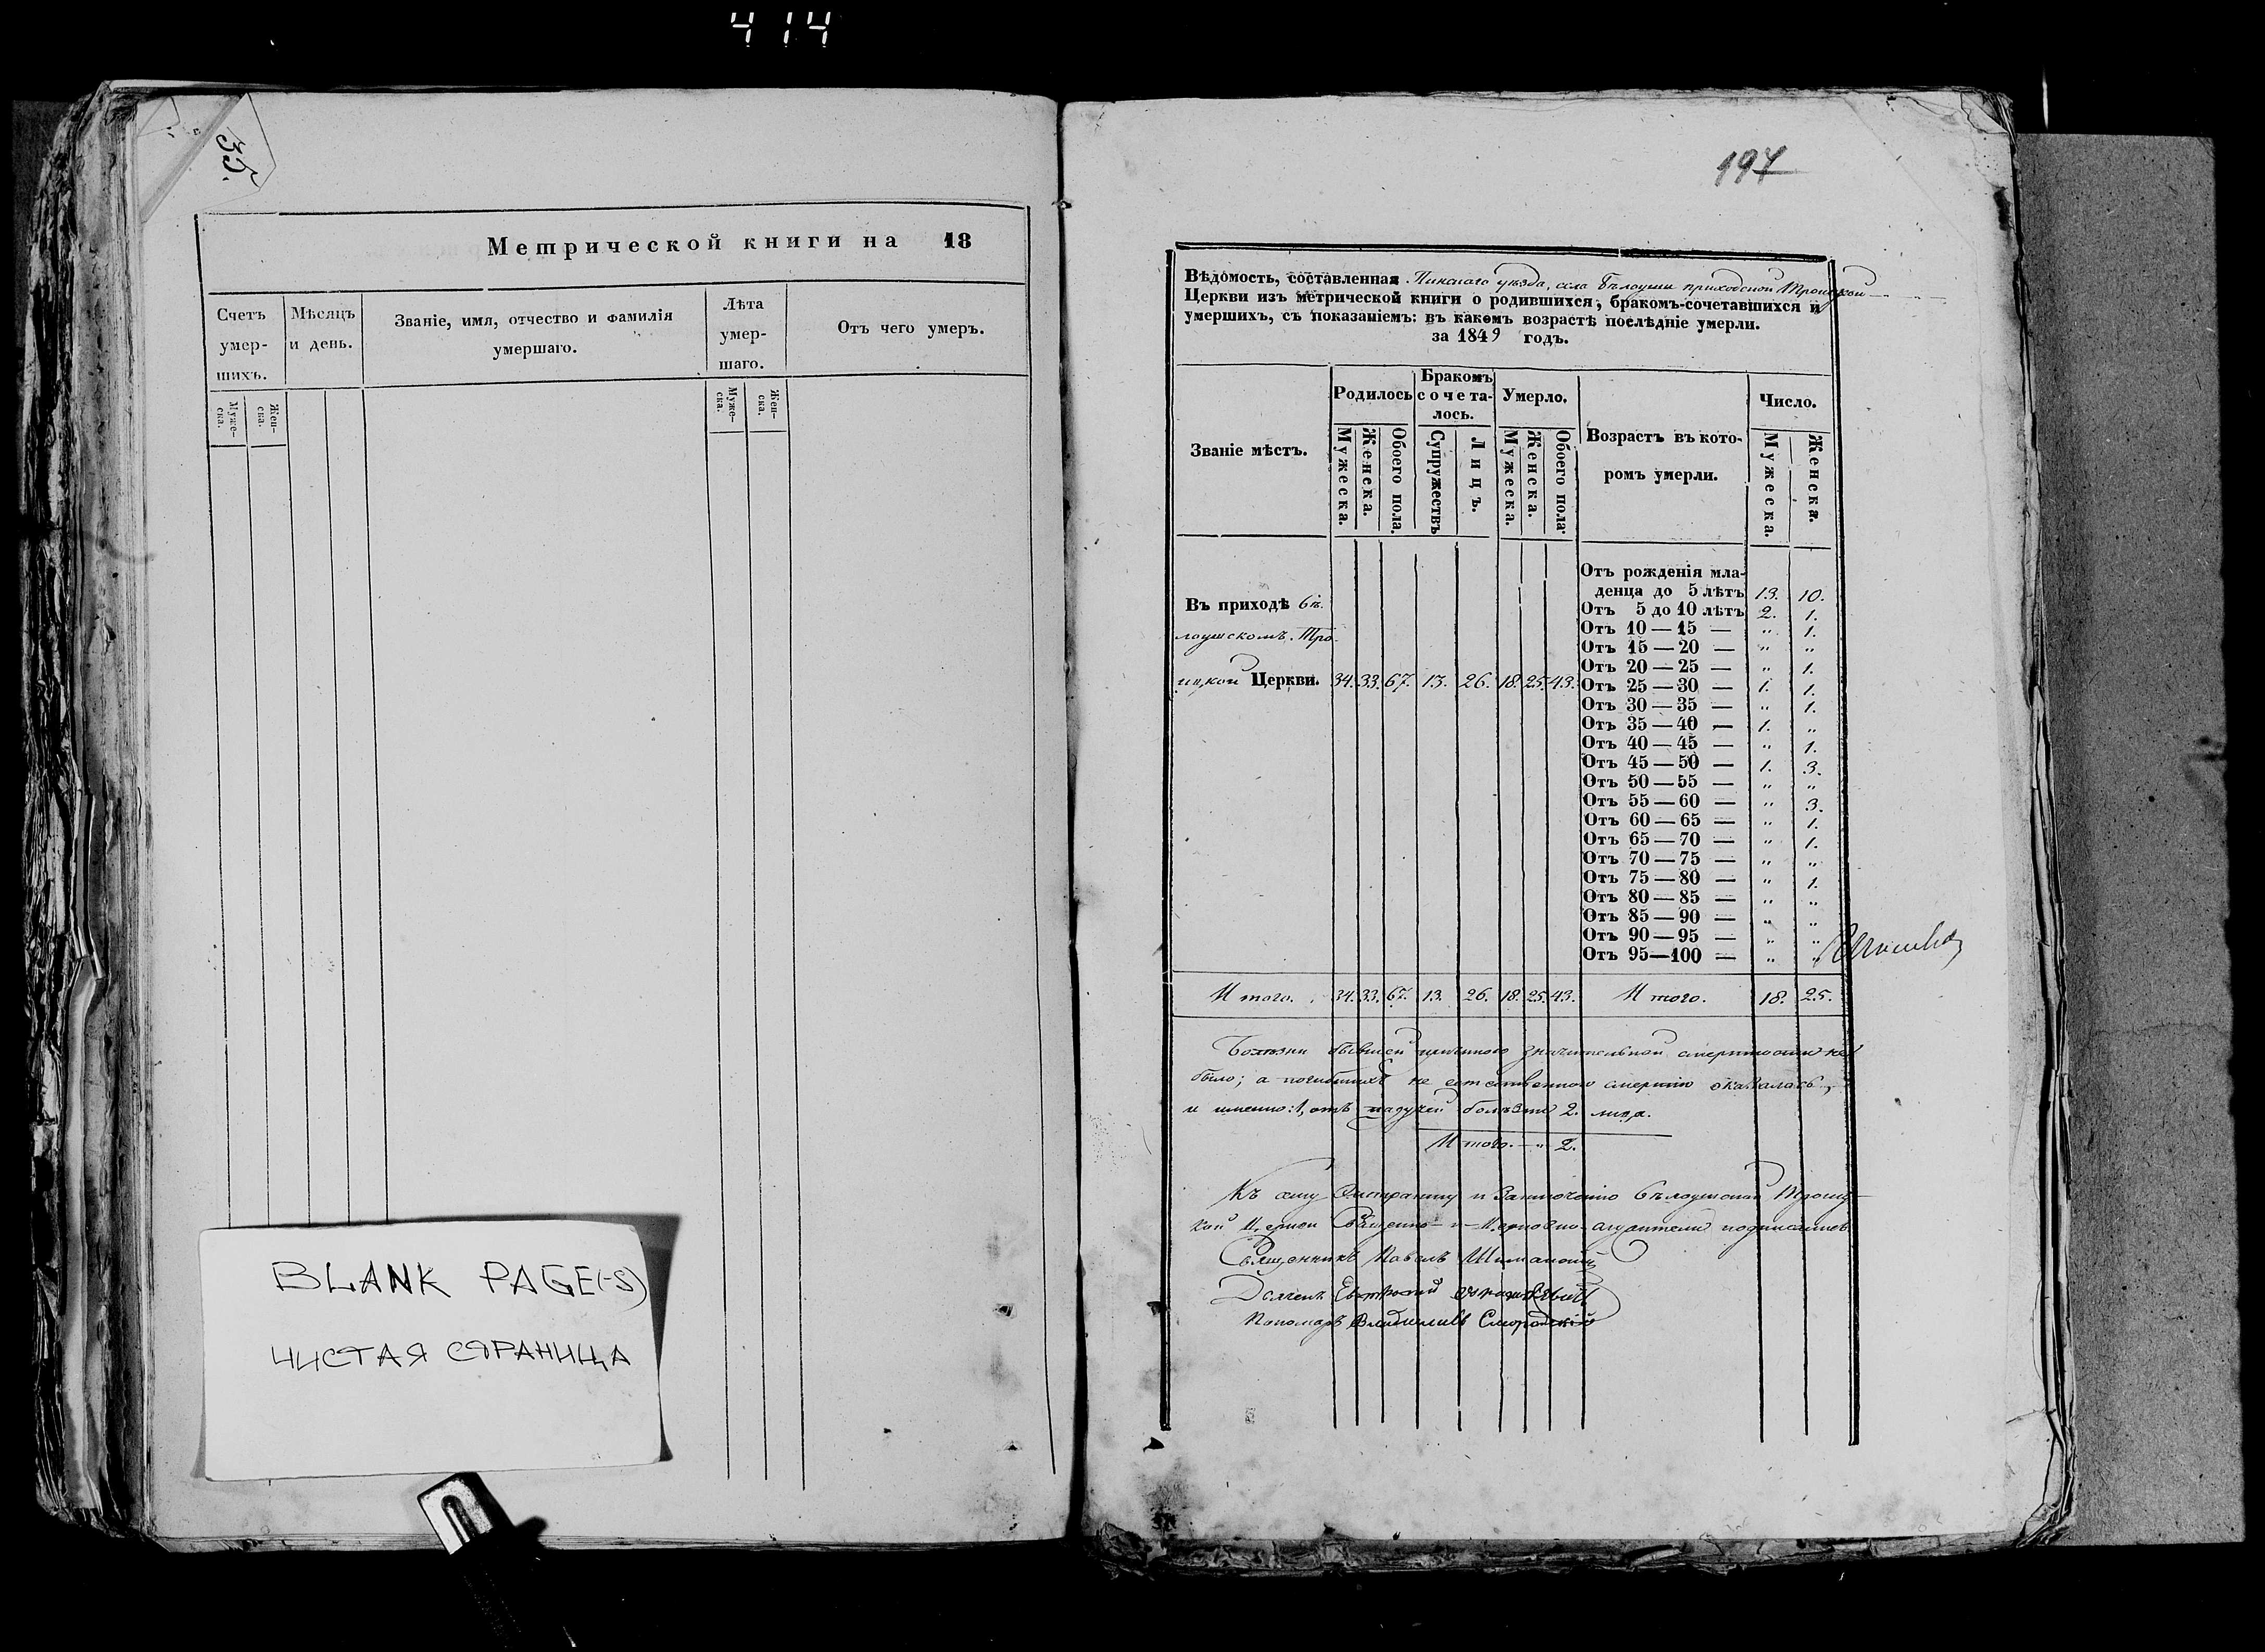 414
35.
Метрической книги на 18
Счетъ умер-шихъ.
Мѣсяцъ и день.
Званіе, имя, отчество и фамилія умершаго.
Лѣта умер-шаго.
Отъ чего умеръ.
Муже-ска.
Жен-ска.
Муже-ска.
Жен-ска.
BLANK PAGE(-S)
ЧИСТАЯ СТРАНИЦА
197
Вѣдомость, составленная Пинскаго уѣзда, села Бѣлоуши приходской Троицкой
Церкви изъ метрической книги о родившихся, бракомъ-сочетавшихся и
умершихъ, съ показаніемъ: въ какомъ возрастѣ послѣдніе умерли.
за 1849 годъ.
Званіе мѣстъ.
Родилось
Бракомъ сочета-лось.
Умерло.
Возрастъ въ кото-ромъ умерли.
Число.
Мужеска. Женска. Обоего пола. Супружествъ Лицъ. Мужеска. Женска. Обоего пола. Мужеска. Женска.
Въ приходѣ Бѣ-
лоушскомъ. Тро-
ицкой Церкви. 34. 33. 67. 13. 26. 18. 25. 43.
Отъ рожденія мла-
денца до 5 лѣтъ 13. 10.
Отъ 5 до 10 лѣтъ 2. 1.
Отъ 10 — 15 — " 1.
Отъ 15 — 20 — " "
Отъ 20 — 25 — " 1.
Отъ 25 — 30 — 1. 1.
Отъ 30 — 35 — " 1.
Отъ 35 — 40 — 1. "
Отъ 40 — 45 — " 1.
Отъ 45 — 50 — 1. 3.
Отъ 50 — 55 — " "
Отъ 55 — 60 — " 3.
Отъ 60 — 65 — " 1.
Отъ 65 — 70 — " 1.
Отъ 70 — 75 — " "
Отъ 75 — 80 — " 1.
Отъ 80 — 85 — " "
Отъ 85 — 90 — " "
Отъ 90 — 95 — " "
Отъ 95—100 — " "
Итого. 34. 33. 67. 13. 26. 18. 25. 43. Итого. 18. 25.
Болѣзни бывшей причиною значительной смертности не
было; а погибшихъ не естественною смертію оказалась,
и именно: 1, отъ падучей болѣзни 2. лица.
Итого. - " 2.
Къ сему Экстракту и Заключенію Бѣлоушской Троиц-
кой Церкви Священно- и- Церковно-служители подписались
Священникъ Павелъ
Дьячекъ
Пономарь